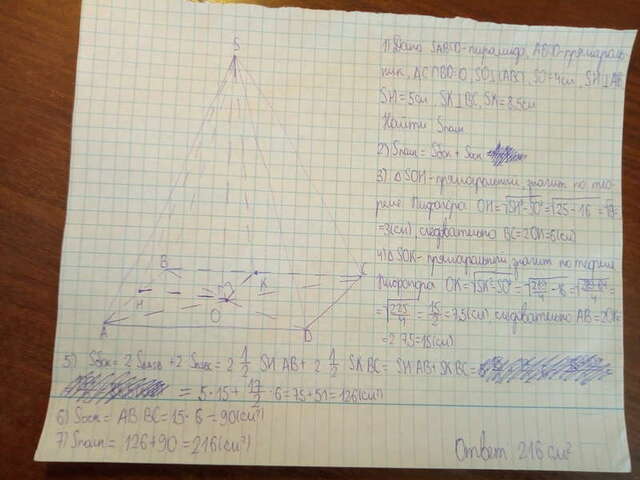 S
B
C
K
H
O
A
D
1) Дано SABCD-пирамида, ABCD-прямоуголь-
ник, AC∩BD=O, SO⊥(ABC), SO=4см, SH⊥AB,
SH=5см, SK⊥BC, SK=8,5см
Найти Sполн
2) Sполн = Sбок + Sосн
3) △SOH-прямоугольный, значит по тео-
реме Пифагора OH=√SH²-SO²=√25-16=√9=
=3(см), следовательно BC=2OH=6(см)
4) △SOK-прямоугольный значит по теореме
Пифагора OK=√SK²-SO²=√289/4-16=
=√225/4=15/2=7,5(см), следовательно AB=2OK=
=2·7,5=15(см)
5) Sбок = 2 SASB + 2 SBSC = 2 1/2 SH AB + 2 1/2 SK BC = SH AB + SK BC =
= 5·15 + 17/2 · 6 = 75 + 51 = 126(см²)
6) Sосн = AB BC = 15·6 = 90(см²)
7) Sполн = 126+90 = 216(см²)
Ответ 216 см²